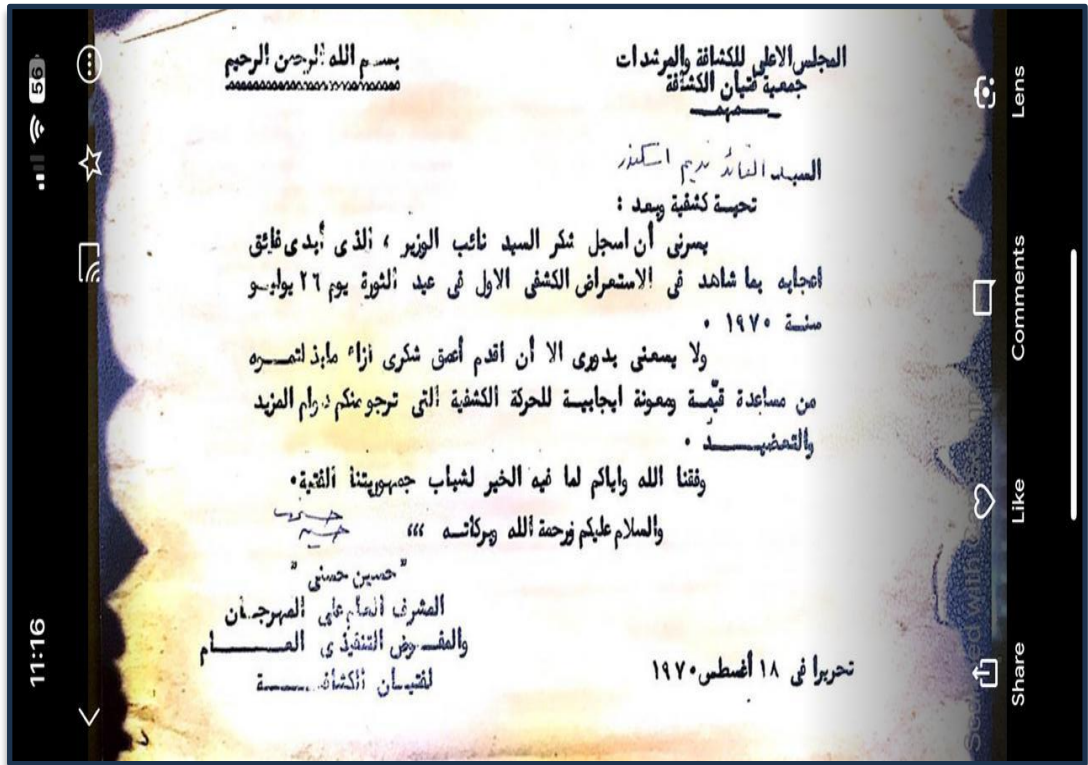 المجلس الاعلى للكشافة والمرشدات
جمعية فتيان الكشافة
بسم الله الرحمن الرحيم
السيد القائد نديم اسكندر
تحية كشفية وبعد :
يسرنى أن اسجل شكر السيد نائب الوزير ، الذى أبدى فائق
اعجابه بما شاهد فى الاستعراض الكشفى الاول فى عيد الثورة يوم ٢٦ يوليو
سنة ١٩٧٠ ٠
ولا يسعنى بدورى الا أن اقدم أعمق شكرى ازاء مابذلتموه
من مساعدة قيّمة ومعونة ايجابية للحركة الكشفية التى نرجو منكم دوام المزيد
والتعضيد ٠
وفقنا الله واياكم لما فيه الخير لشباب جمهوريتنا الفتية٠
والسلام عليكم ورحمة الله وبركاته ،،،
" حسين حسنى "
المشرف العام على المهرجان
والمفوض التنفيذى العام
لفتيان الكشافة
تحريرا فى ١٨ أغسطس ١٩٧٠
11:16
56
Share
Like
Comments
Lens